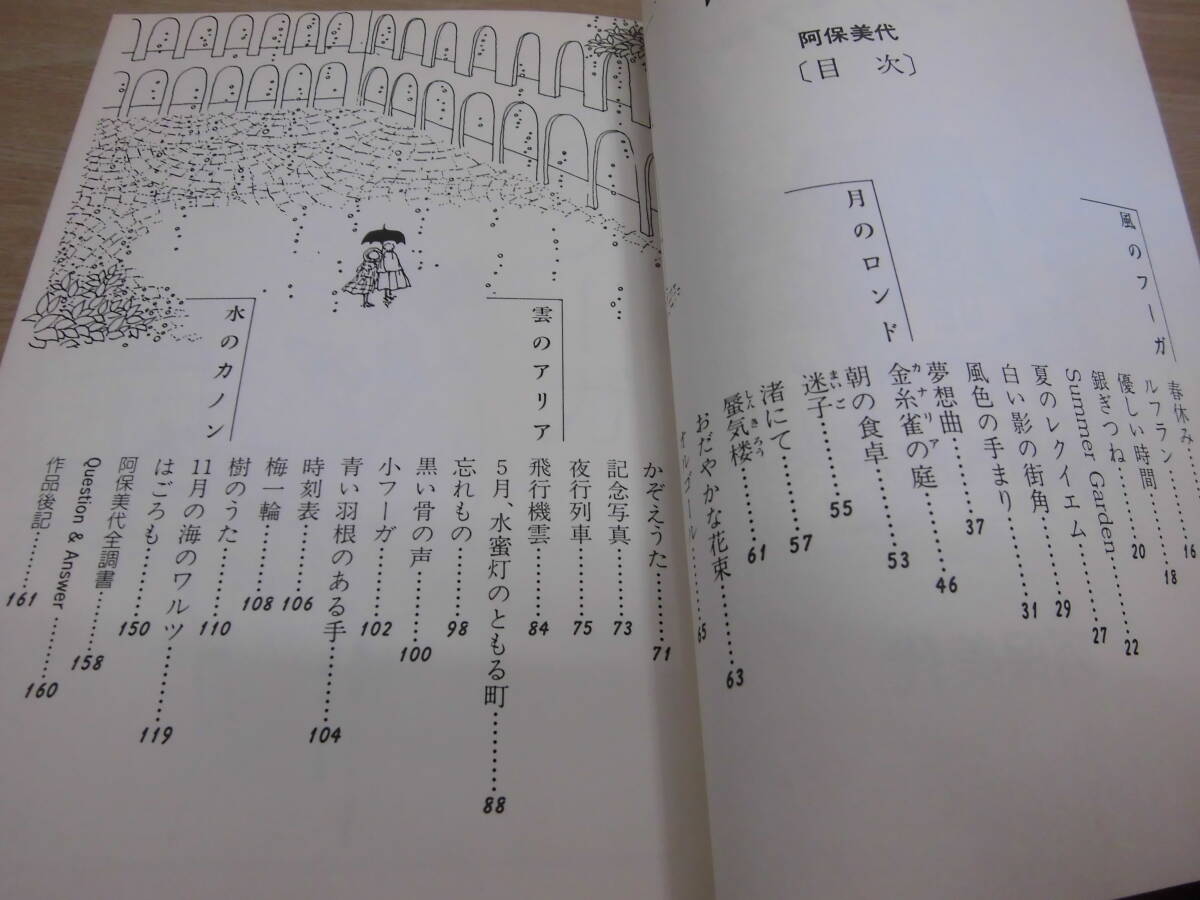 阿保美代
〔目 次〕
風のフーガ
春休み……
ルフラン……16
優しい時間……18
銀ぎつね……20
Summer Garden……22
夏のレクイエム……27
白い影の街角……29
風色の手まり……31
月のロンド
夢想曲……37
金糸雀の庭……46
カナリア
朝の食卓……53
迷子……55
まいご
渚にて……57
蜃気楼……61
しんきろう
おだやかな花束……63
オルゴール……65
雲のアリア
かぞえうた……71
記念写真……73
夜行列車……75
飛行機雲……84
5月、水蜜灯のともる町……88
忘れもの……98
黒い骨の声……100
小フーガ……102
青い羽根のある手……104
水のカノン
時刻表……106
梅一輪……108
樹のうた……110
11月の海のワルツ……119
はごろも……150
阿保美代全調書……158
Question & Answer……160
作品後記……161